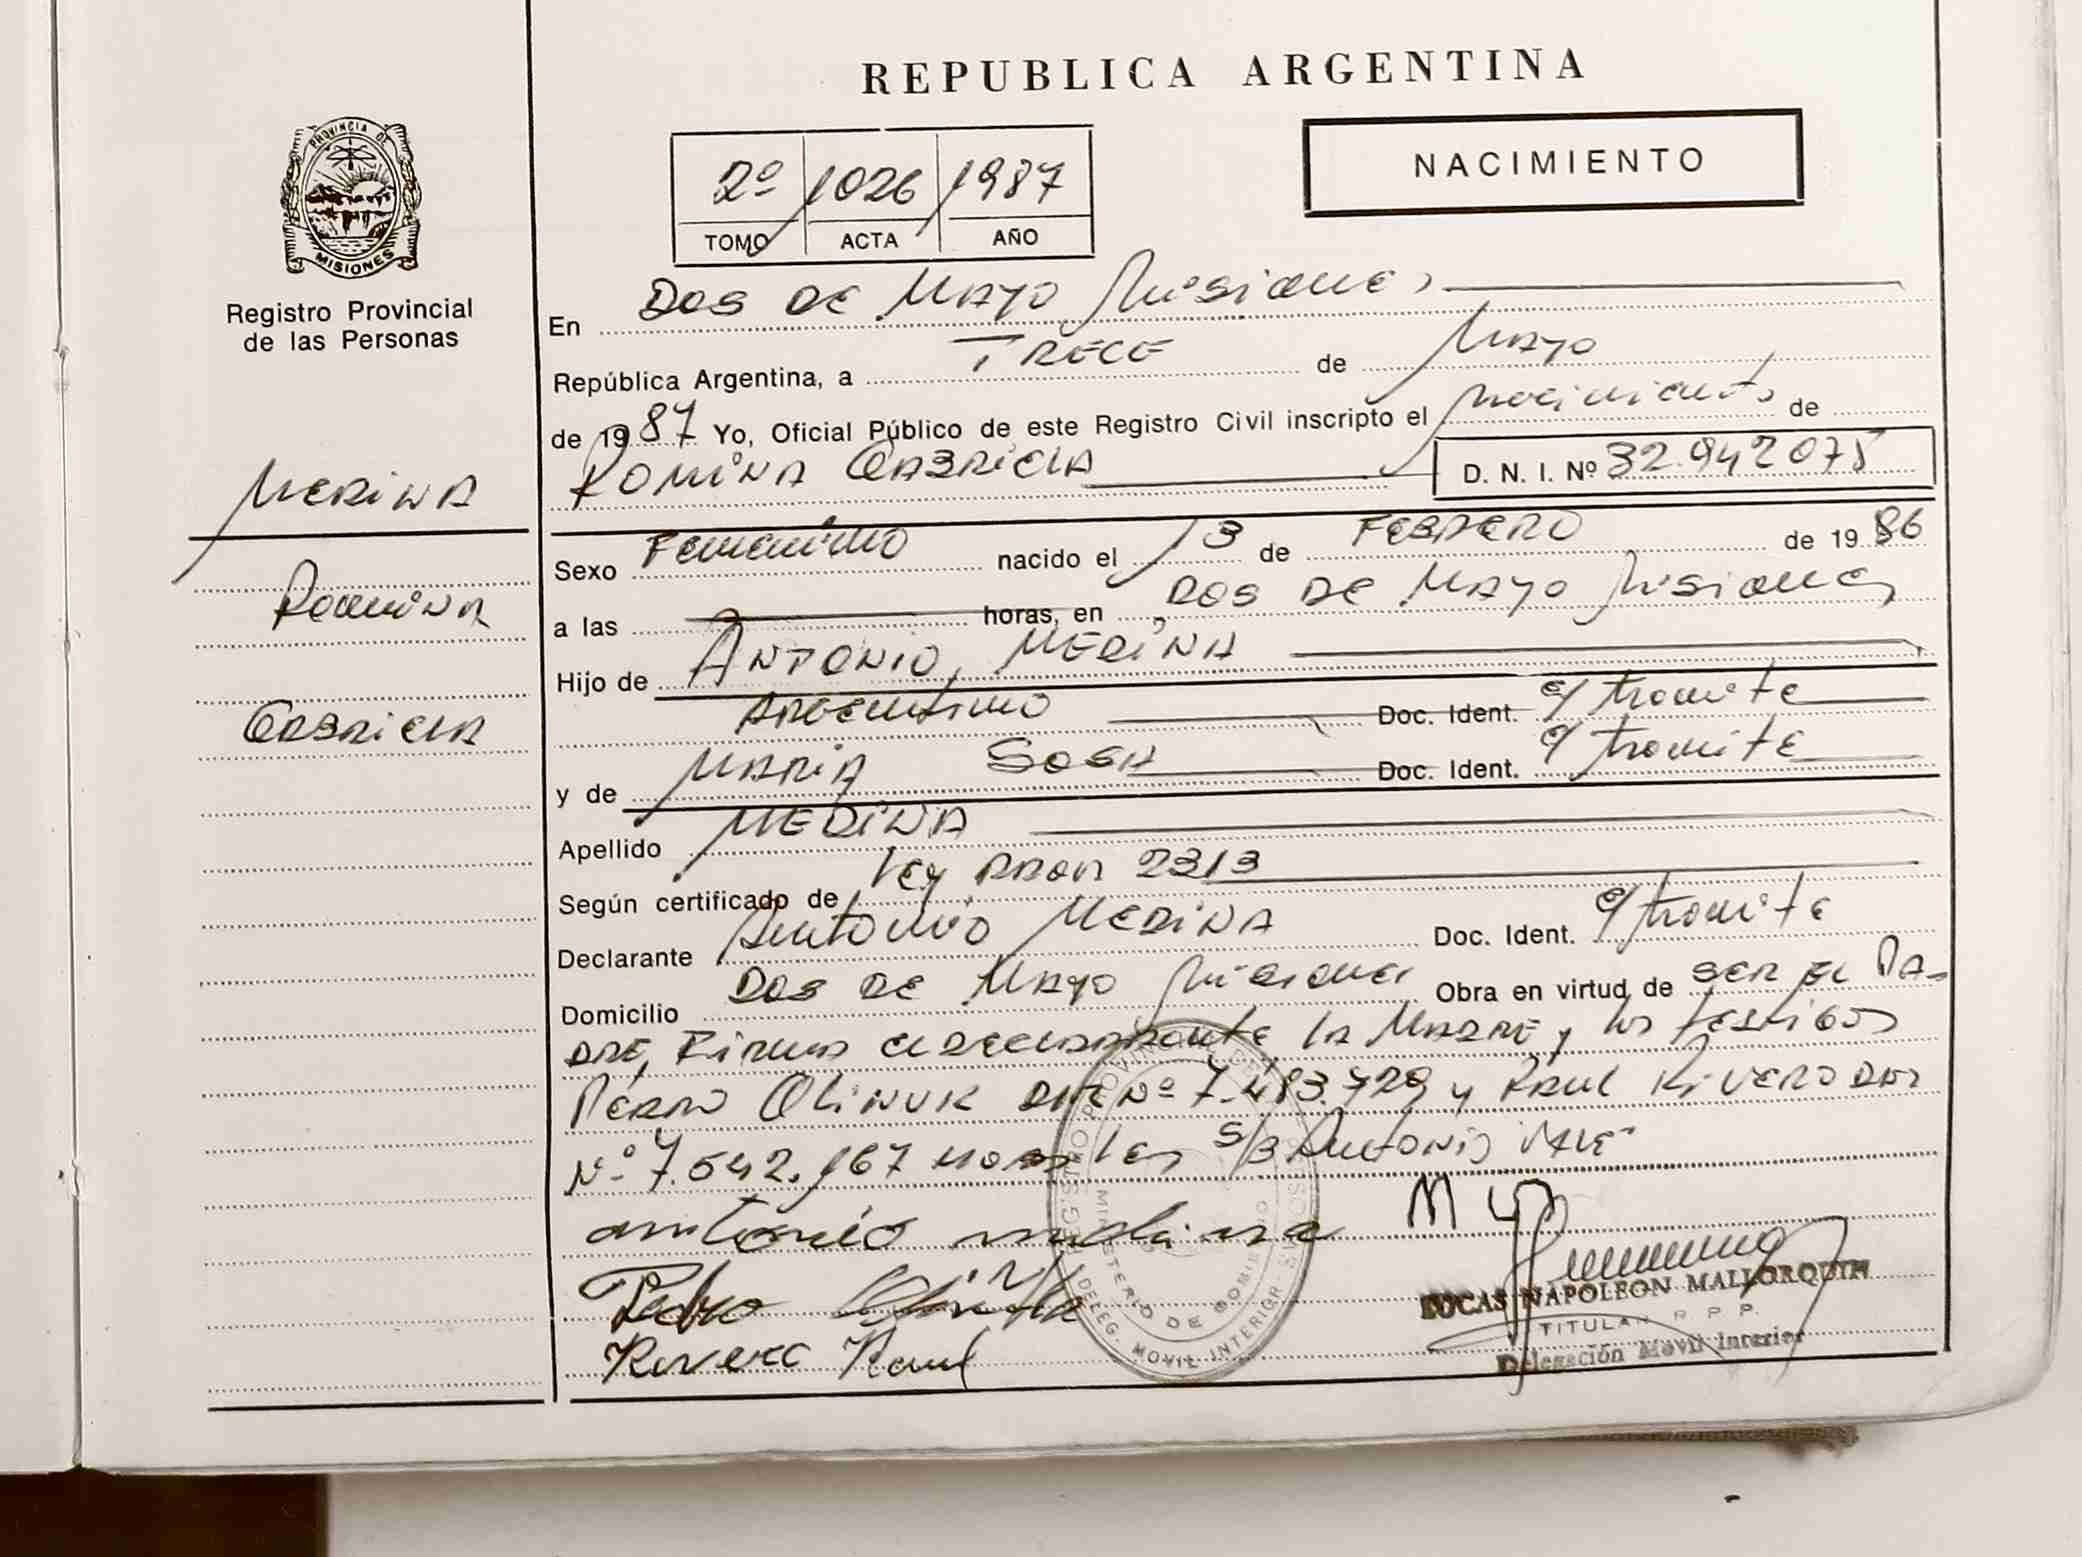 REPUBLICA ARGENTINA
PROVINCIA DE
MISIONES
Registro Provincial
de las Personas
2º 1026 1987
TOMO ACTA AÑO
NACIMIENTO
En Dos de Mayo Misiones
República Argentina, a TRECE de Mayo
de 1987 Yo, Oficial Público de este Registro Civil inscripto el nacimiento de
Romina Gabriela D. N. I. Nº 32.942075
MEDINA
Romina
Gabriela
Sexo Femenino nacido el 13 de FEBRERO de 1986
a las horas, en Dos de Mayo Misiones
Hijo de Antonio, MEDINA
Argentino Doc. Ident. e/ tramite
y de Maria Sosa Doc. Ident. e/ tramite
Apellido MEDINA
Según certificado de Ley 2313
Declarante Antonio MEDINA Doc. Ident. e/ tramite
Domicilio Dos de Mayo Misiones Obra en virtud de ser el Pa-
dre, Firma el declarante la Madre y los testigos
Pedro Olinuk DNI Nº 7.483.729 y Raul Rivero DNI
Nº 7.542.167 S/B Antonio Vale
antonio medina M
Pedro
Rivero Raul
REGISTRO PROVINCIAL DE
MINISTERIO DE GOBIERNO
DELEG. MOVIL INTERIOR
LUCAS NAPOLEON MALLORQUIN
TITULAR R. P. P.
Delegación Movil Interior